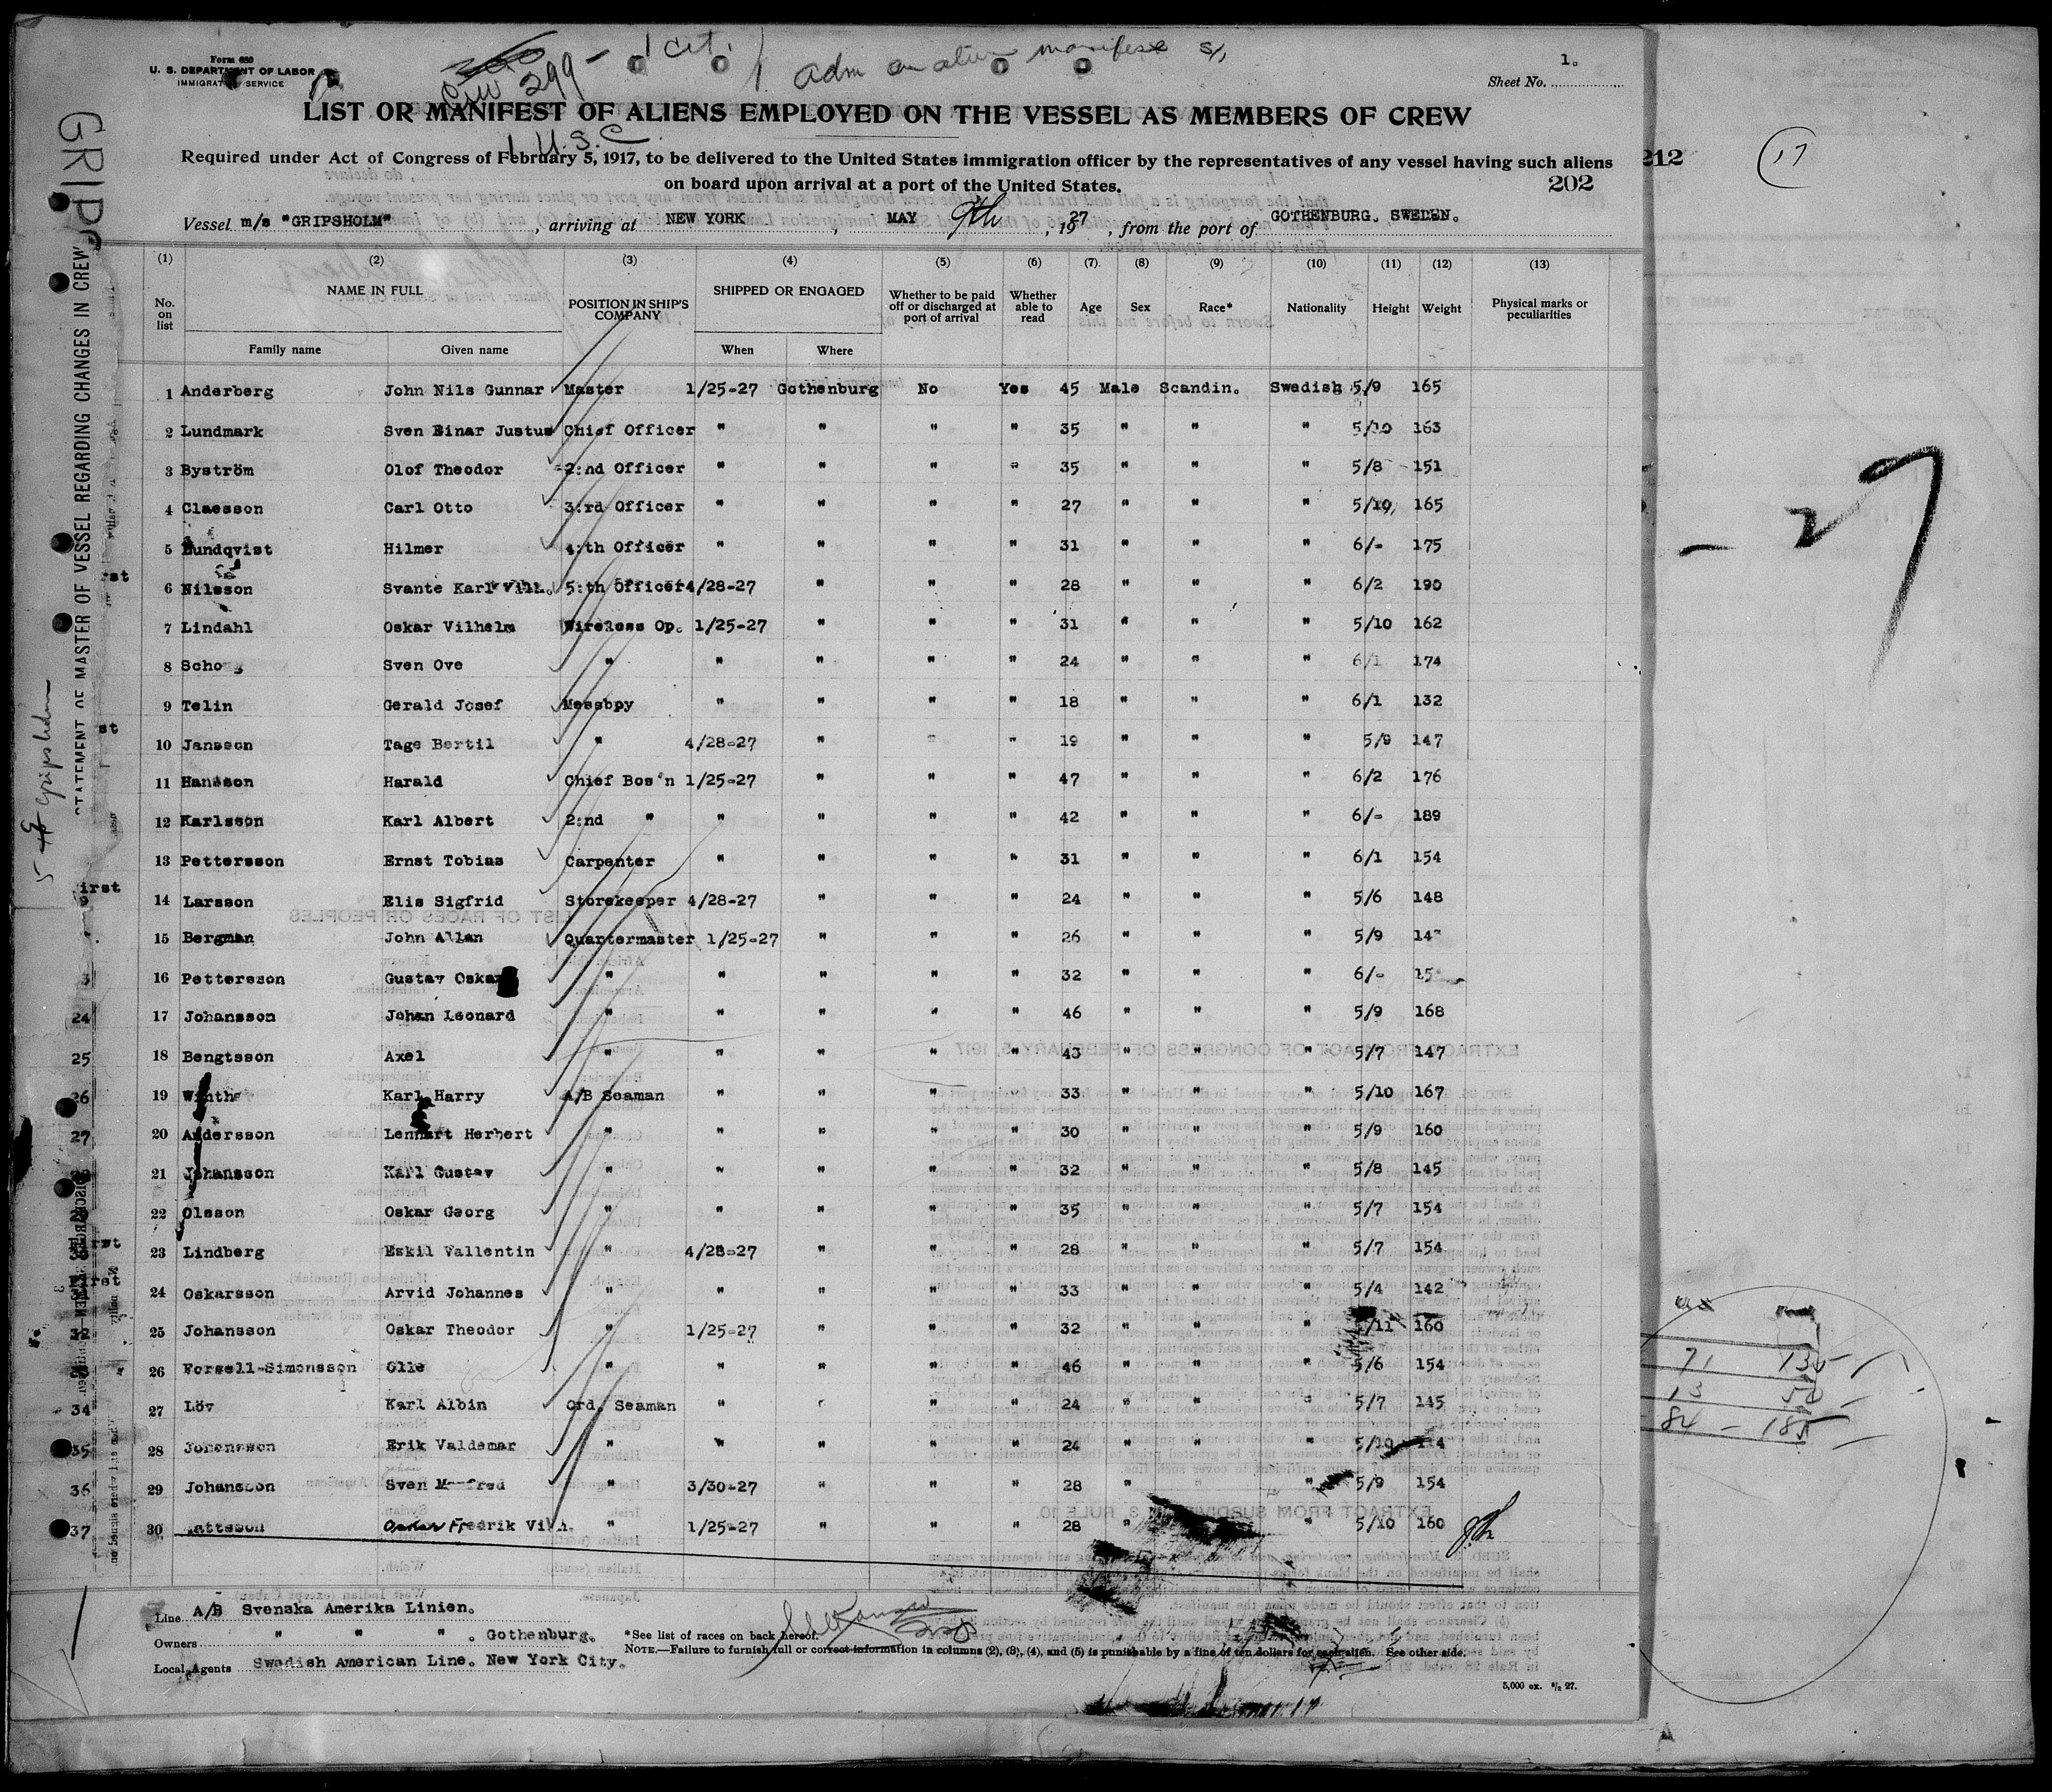 Form 680
U. S. DEPARTMENT OF LABOR
IMMIGRATION SERVICE
299 - 1 cit.
adm on alien manifest
1.
Sheet No.
LIST OR MANIFEST OF ALIENS EMPLOYED ON THE VESSEL AS MEMBERS OF CREW
1 U.S.C
Required under Act of Congress of February 5, 1917, to be delivered to the United States immigration officer by the representatives of any vessel having such aliens
on board upon arrival at a port of the United States.
202
212
17
Vessel m/s "GRIPSHOLM", arriving at NEW YORK, MAY 9th, 1927, from the port of GOTHENBURG, SWEDEN.
(1) (2) (3) (4) (5) (6) (7) (8) (9) (10) (11) (12) (13)
No. on list NAME IN FULL POSITION IN SHIP'S COMPANY SHIPPED OR ENGAGED Whether to be paid off or discharged at port of arrival Whether able to read Age Sex Race* Nationality Height Weight Physical marks or peculiarities
Family name Given name When Where
1 Anderberg John Nils Gunnar Master 1/25-27 Gothenburg No Yes 45 Male Scandin. Swedish 5/9 165
2 Lundmark Sven Einar Justus Chief Officer " " " " 35 " " " 5/10 163
3 Byström Olof Theodor 2:nd Officer " " " " 35 " " " 5/8 151
4 Claesson Carl Otto 3:rd Officer " " " " 27 " " " 5/10 165
5 Lundqvist Hilmer 4:th Officer " " " " 31 " " " 6/- 175
6 Nilsson Svante Karl Vilh. 5:th Officer 4/28-27 " " " 28 " " " 6/2 190
7 Lindahl Oskar Vilhelm Wireless Op. 1/25-27 " " " 31 " " " 5/10 162
8 Sven Ove " " " " " 24 " " " 6/1 174
9 Telin Gerald Josef Messboy " " " " 18 " " " 6/1 132
10 Jansson Tage Bertil " 4/28-27 " " " 19 " " " 5/9 147
11 Hansson Harald Chief Bos'n 1/25-27 " " " 47 " " " 6/2 176
12 Karlsson Karl Albert 2:nd " " " " " 42 " " " 6/- 189
13 Pettersson Ernst Tobias Carpenter " " " " 31 " " " 6/1 154
14 Larsson Elis Sigfrid Storekeeper 4/28-27 " " " 24 " " " 5/6 148
15 Bergman John Allan Quartermaster 1/25-27 " " " 26 " " " 5/9
16 Pettersson Gustav Oskar " " " " " 32 " " " 6/-
17 Johansson Johan Leonard " " " " " 46 " " " 5/9 168
18 Bengtsson Axel " " " " " 43 " " " 5/7 147
19 Karl Harry A/B Seaman " " " " 33 " " " 5/10 167
20 Andersson Lennart Herbert " " " " " 30 " " " 5/9 160
21 Johansson Karl Gustav " " " " " 32 " " " 5/8 145
22 Olsson Oskar Georg " " " " " 35 " " " 5/7 154
23 Lindberg Eskil Vallentin " 4/28-27 " " " 28 " " " 5/7 154
24 Oskarsson Arvid Johannes " " " " " 33 " " " 5/4 142
25 Johansson Oskar Theodor " 1/25-27 " " " 32 " " " 5/11 160
26 Forsell-Simonsson Olle " " " " " 46 " " " 5/6 154
27 Löv Karl Albin Ord. Seaman " " " " 24 " " " 5/7 145
28 Johansson Erik Valdemar " " " " " 24 " " " 5/10
29 Johansson Sven Manfred " 3/30-27 " " " 28 " " " 5/9 154
30 Oskar Fredrik Vilh. " 1/25-27 " " " 28 " " " 5/10 160
Line A/B Svenska Amerika Linien.
Owners " " " . Gothenburg.
Local Agents Swedish American Line. New York City.
*See list of races on back hereof.
NOTE.—Failure to furnish full or correct information in columns (2), (3), (4), and (5) is punishable by a fine of ten dollars for each alien. See other side.
5,000 ex. 3/2 27.
STATEMENT OF MASTER OF VESSEL REGARDING CHANGES IN CREW
Gripsholm
24
25
26
27
32
34
35
36
37
- 27
71 135
13 50
84 - 185